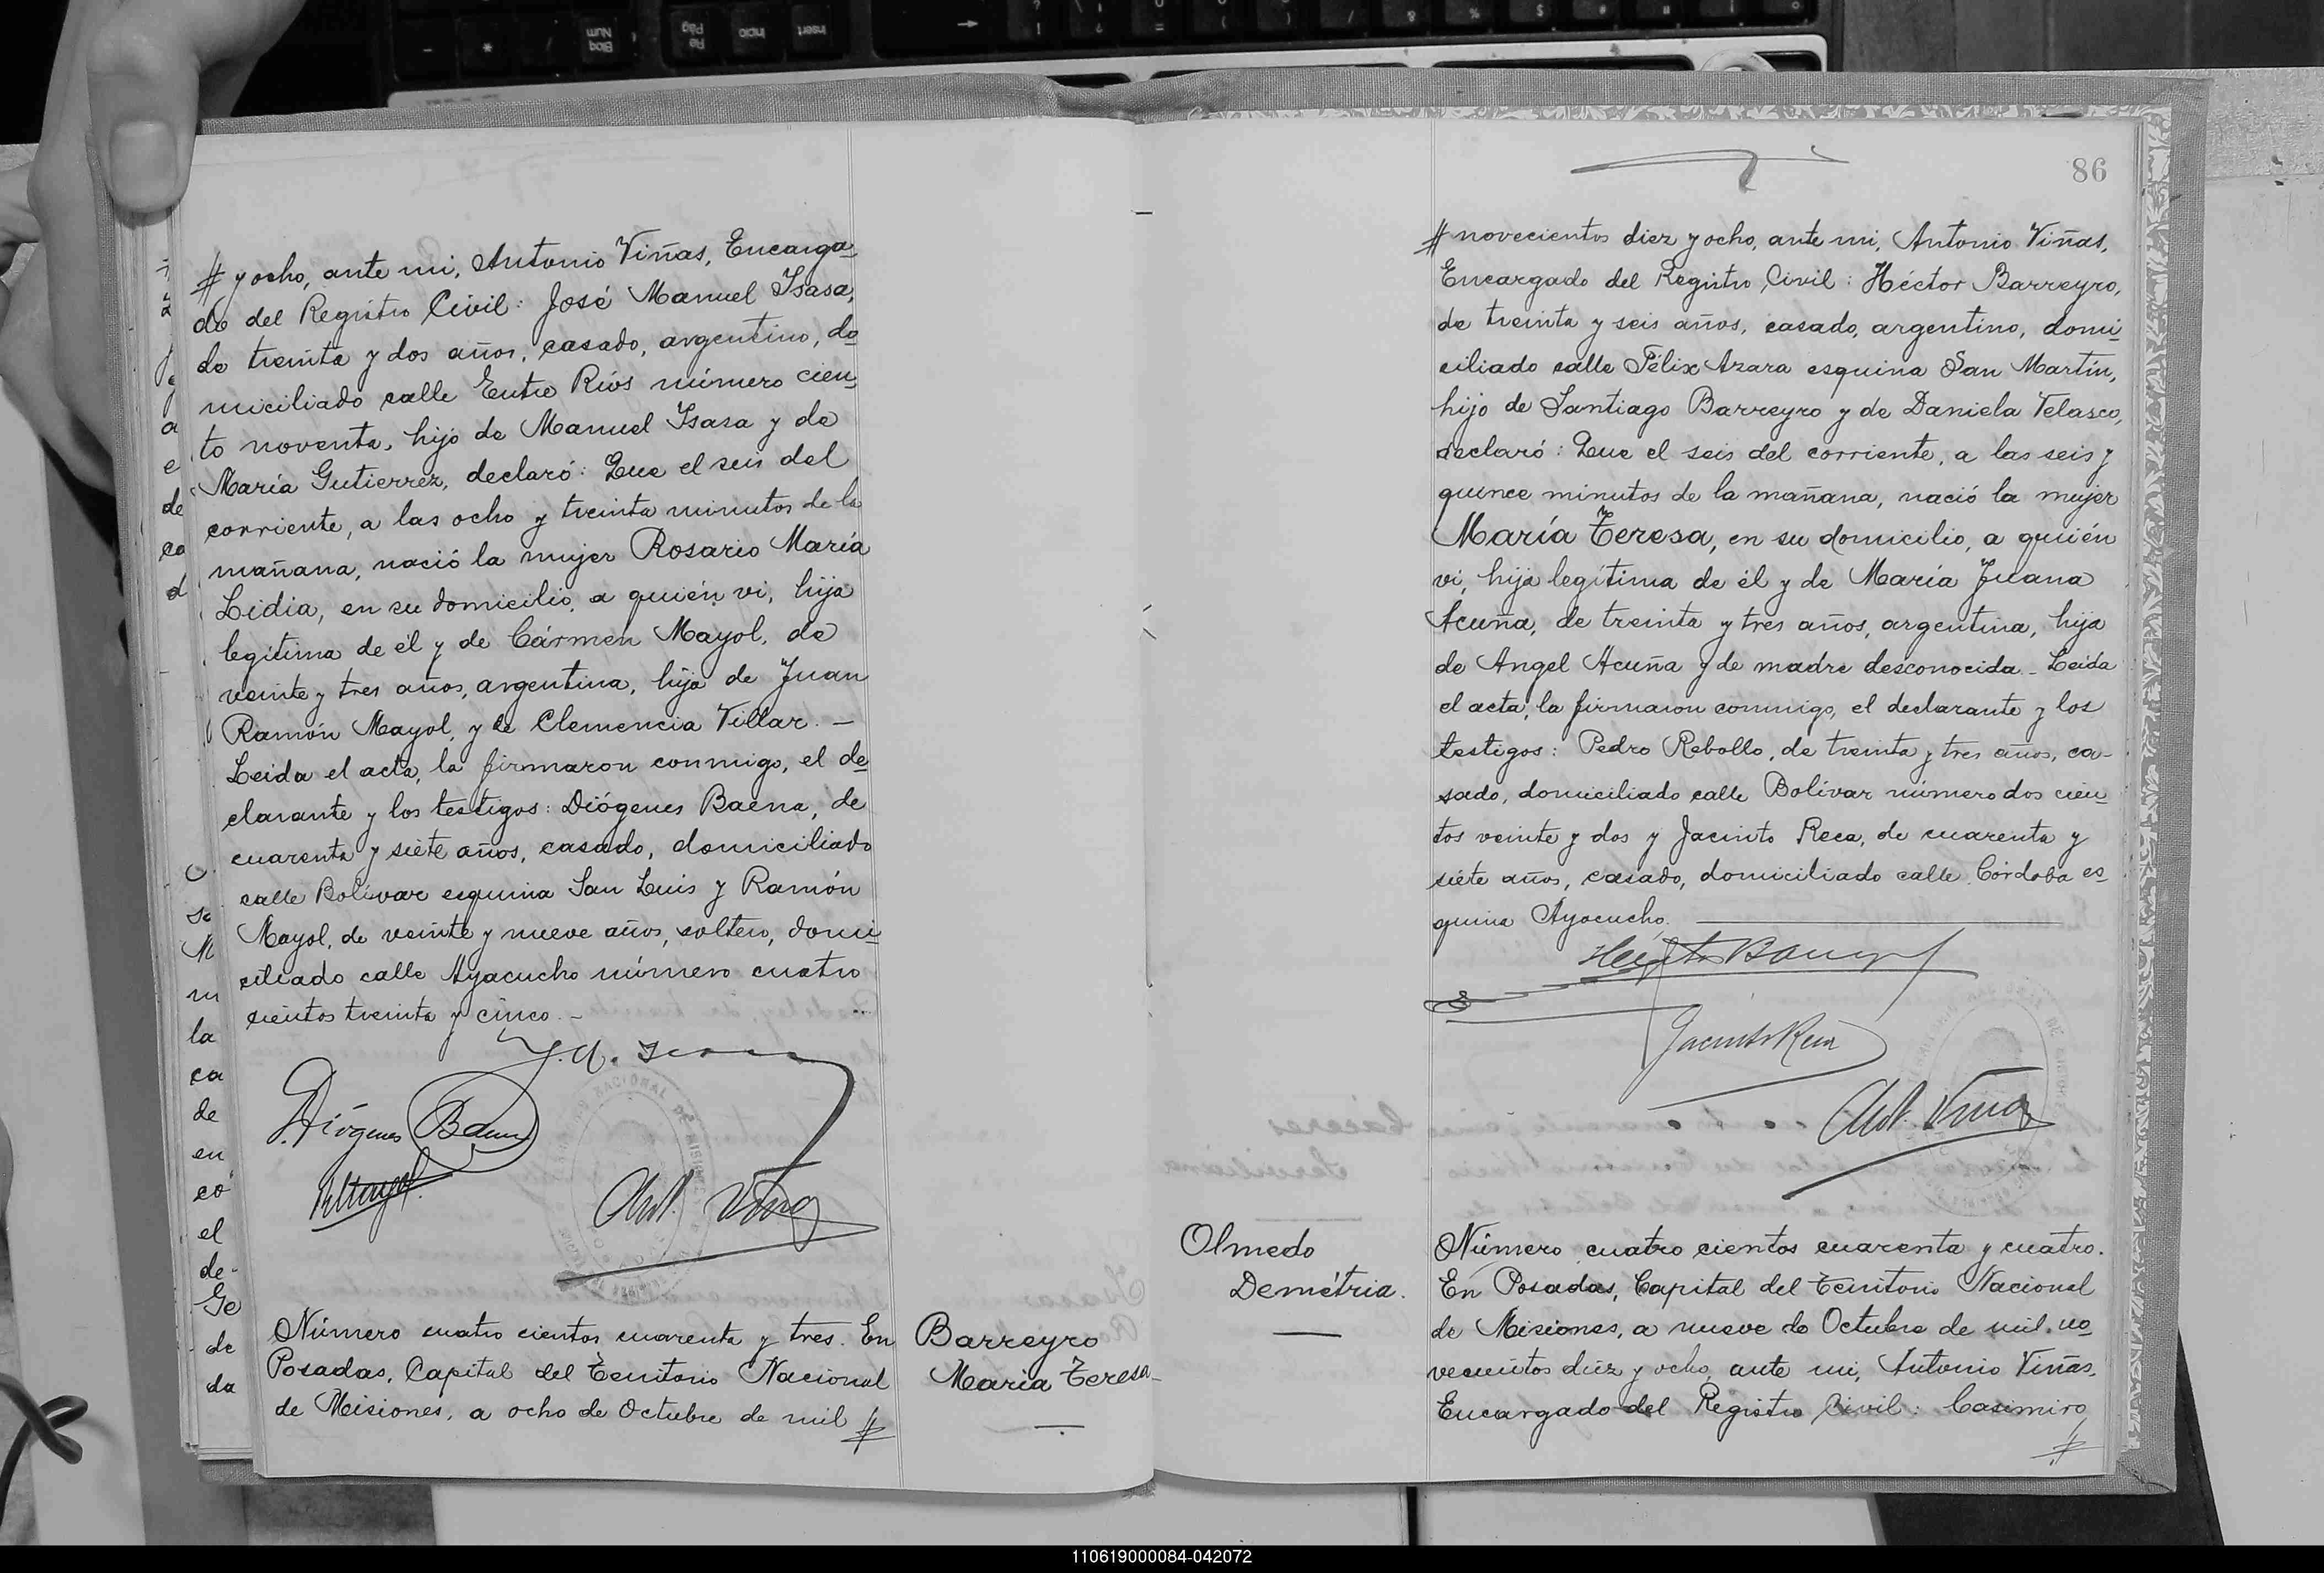 # y ocho, ante mi, Antonio Viñas, Encarga-
do del Registro Civil: José Manuel Isasa,
de treinta y dos años, casado, argentino, do-
miciliado calle Entre Rios número cien-
to noventa, hijo de Manuel Isasa y de
María Gutierrez, declaró: Que el seis del
corriente, a las ocho y treinta minutos de la
mañana, nació la mujer Rosario María
Lidia, en su domicilio, a quién vi, hija
legítima de él y de Cármen Mayol, de
veinte y tres años, argentina, hija de Juan
Ramón Mayol, y de Clemencia Villar. —
Leida el acta, la firmaron conmigo, el de-
clarante y los testigos: Diógenes Baena, de
cuarenta y siete años, casado, domiciliado
calle Bolívar esquina San Luis y Ramón
Mayol, de veinte y nueve años, soltero, domi-
ciliado calle Ayacucho número cuatro
cientos treinta y cinco. -
Diógenes Baena
RMayol
Ant. Viñas
Número cuatro cientos cuarenta y tres. En
Posadas, Capital del Territorio Nacional
de Misiones, a ocho de Octubre de mil #
Barreyro
María Teresa
86
# novecientos diez y ocho, ante mi, Antonio Viñas,
Encargado del Registro Civil: Héctor Barreyro,
de treinta y seis años, casado, argentino, domi-
ciliado calle Félix Azara esquina San Martín,
hijo de Santiago Barreyro y de Daniela Velasco,
declaró: Que el seis del corriente, a las seis y
quince minutos de la mañana, nació la mujer
María Teresa, en su domicilio, a quién
vi, hija legítima de él y de María Juana
Acuña, de treinta y tres años, argentina, hija
de Angel Acuña y de madre desconocida - Leida
el acta, la firmaron conmigo, el declarante y los
testigos: Pedro Rebollo, de treinta y tres años, ca-
sado, domiciliado calle Bolívar número dos cien-
tos veinte y dos y Jacinto Reca, de cuarenta y
siete años, casado, domiciliado calle Córdoba es-
quina Ayacucho.
Héctor Barreyro
Jacinto Reca
Ant. Viñas
Olmedo
Demétria.
Número cuatro cientos cuarenta y cuatro.
En Posadas, Capital del Territorio Nacional
de Misiones, a nueve de Octubre de mil no-
vecientos diez y ocho, ante mi, Antonio Viñas,
Encargado del Registro Civil: Casimiro
#
110619000084-042072